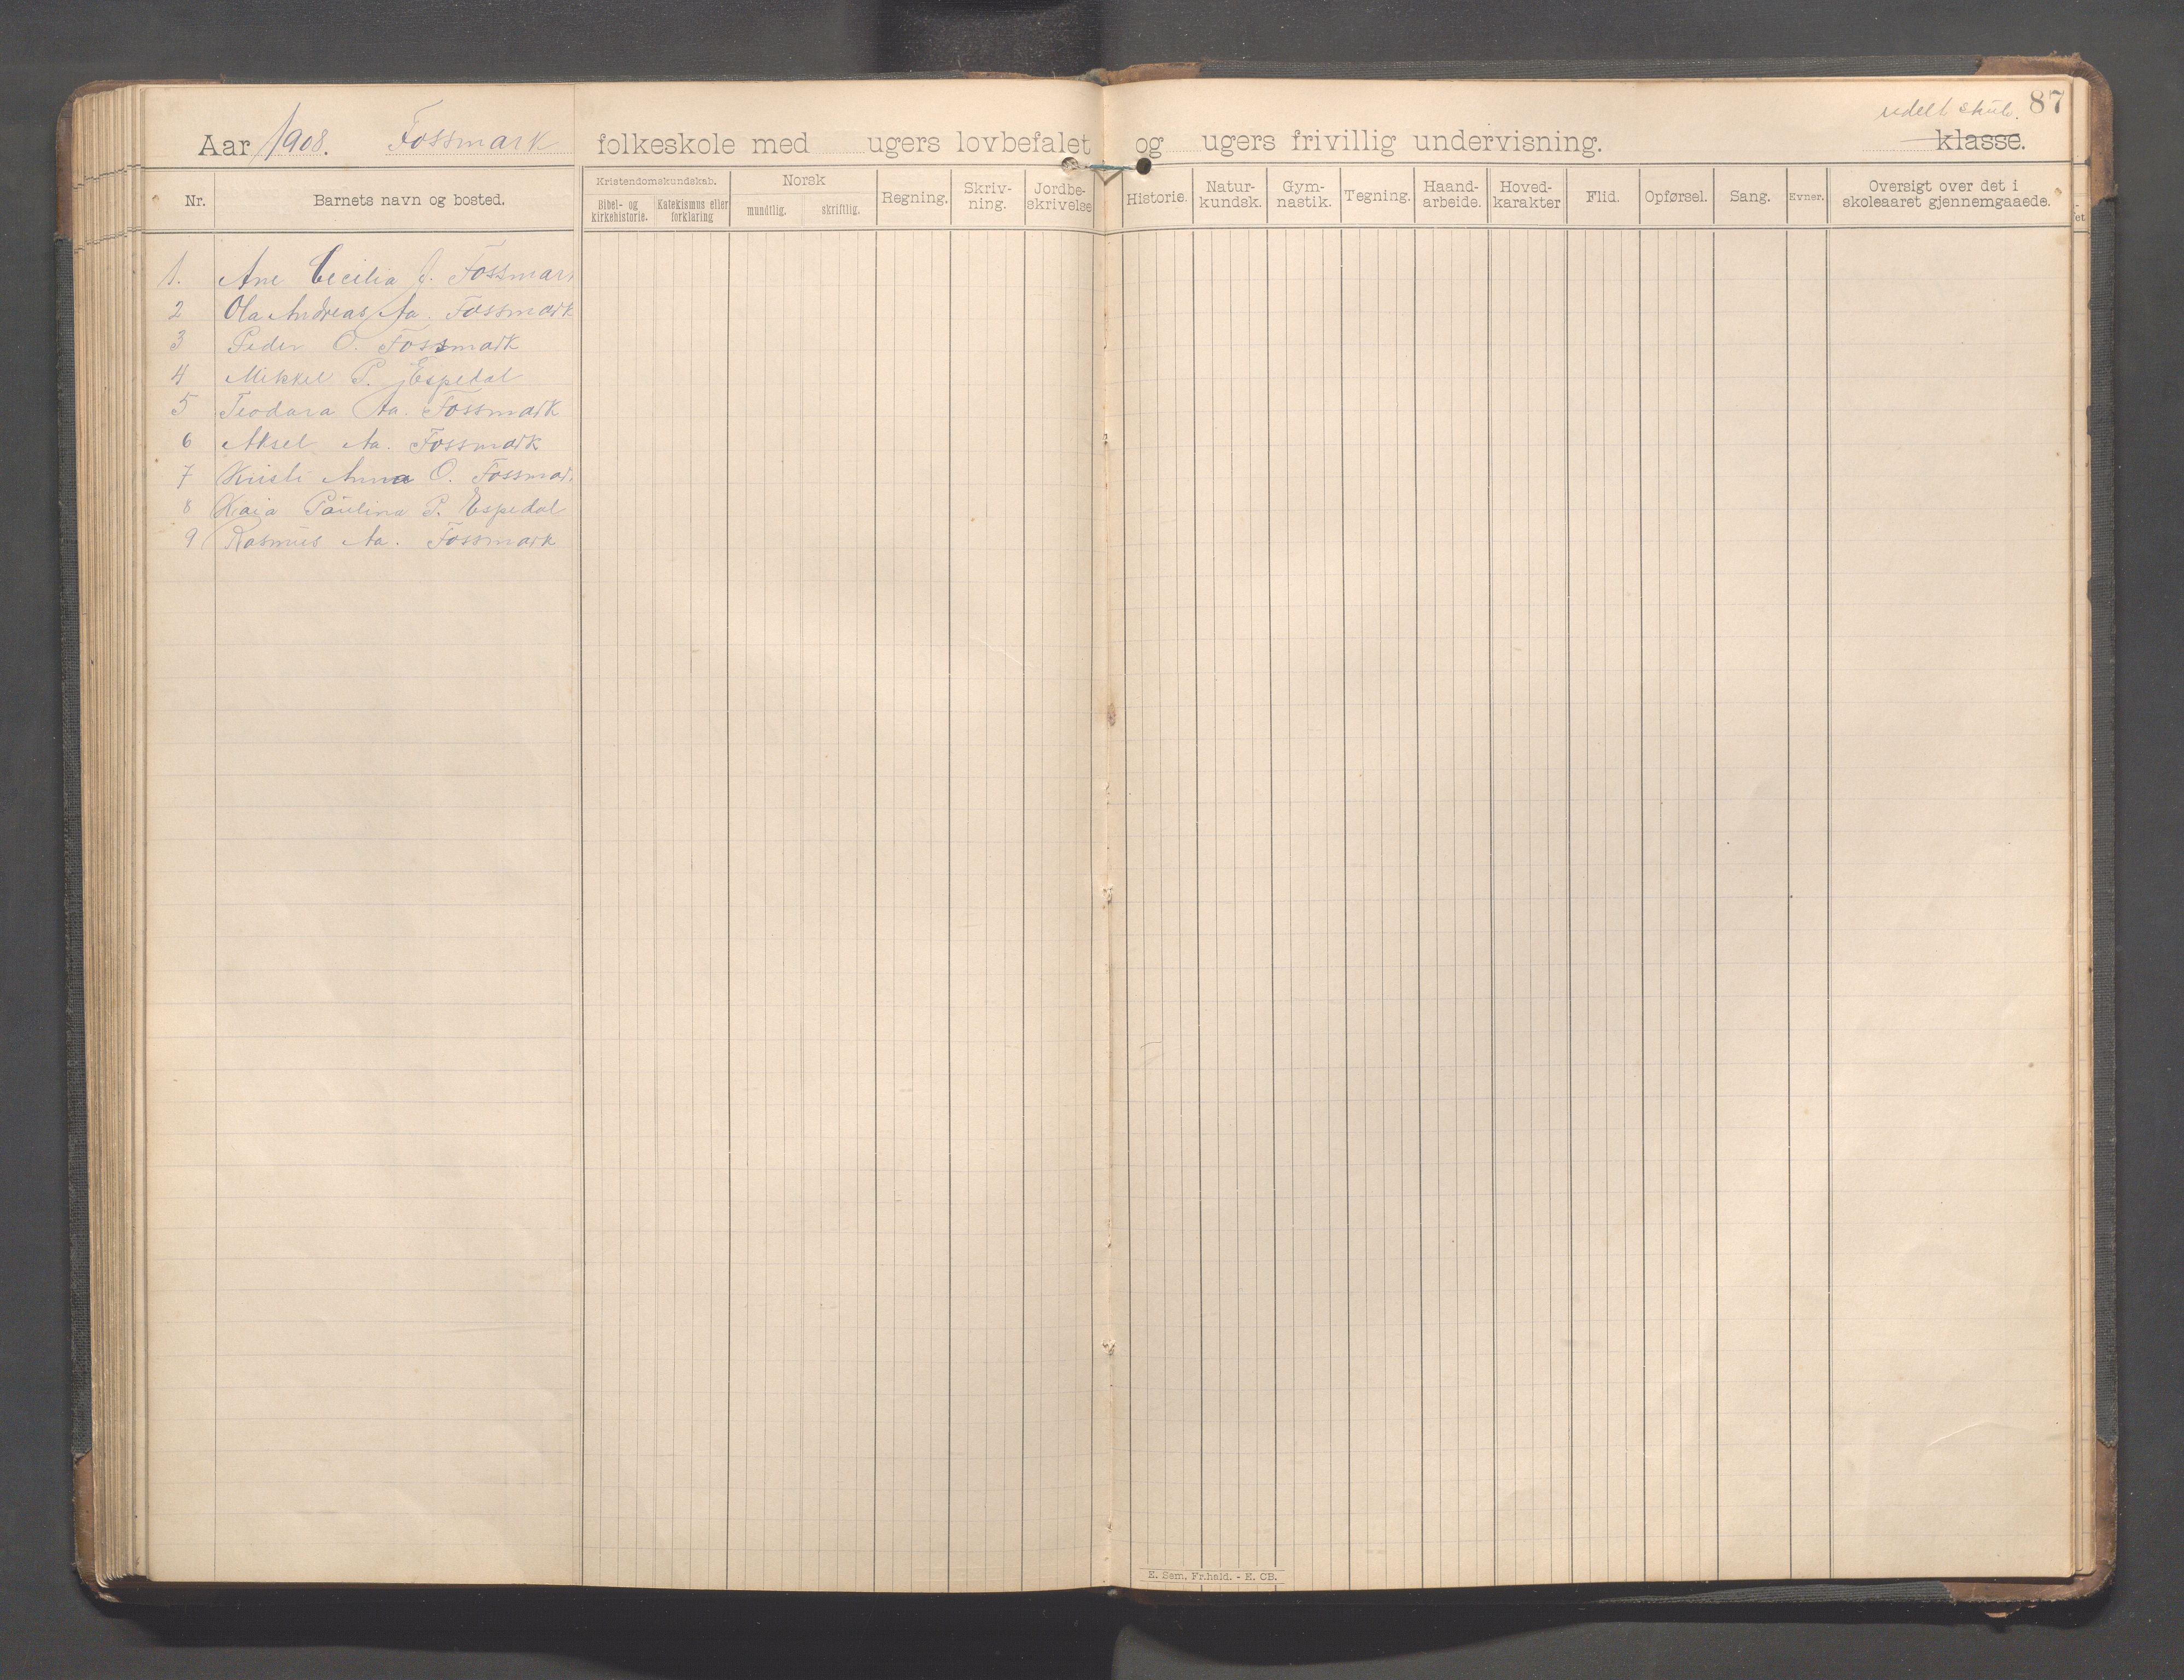 87
udelt skule.
Aar 1908. Fossmark folkeskole med ugers lovbefalet og ugers frivillig undervisning. klasse.
Nr. Barnets navn og bosted. Kristendomskundskab. Bibel- og kirkehistorie. Katekismus eller forklaring Norsk mundtlig. skriftlig. Regning. Skriv-ning. Jordbe-skrivelse Historie. Natur-kundsk. Gym-nastik. Tegning. Haand-arbeide. Hoved-karakter Flid. Opførsel. Sang. Evner. Oversigt over det i skoleaaret gjennemgaaede.
1. Ane Cecilia J. Fossmark
2 Ola Andreas Aa. Fossmark
3 Peder O. Fossmark
4 Mikkel P. Espedal
5 Teodara Aa. Fossmark
6 Aksel Aa. Fossmark
7 Kristi Anna O. Fossmar.
8 Kaia Paulina P. Espedal
9 Rasmus Aa. Fossmark
E. Sem, Fr.hald. - E. CB.